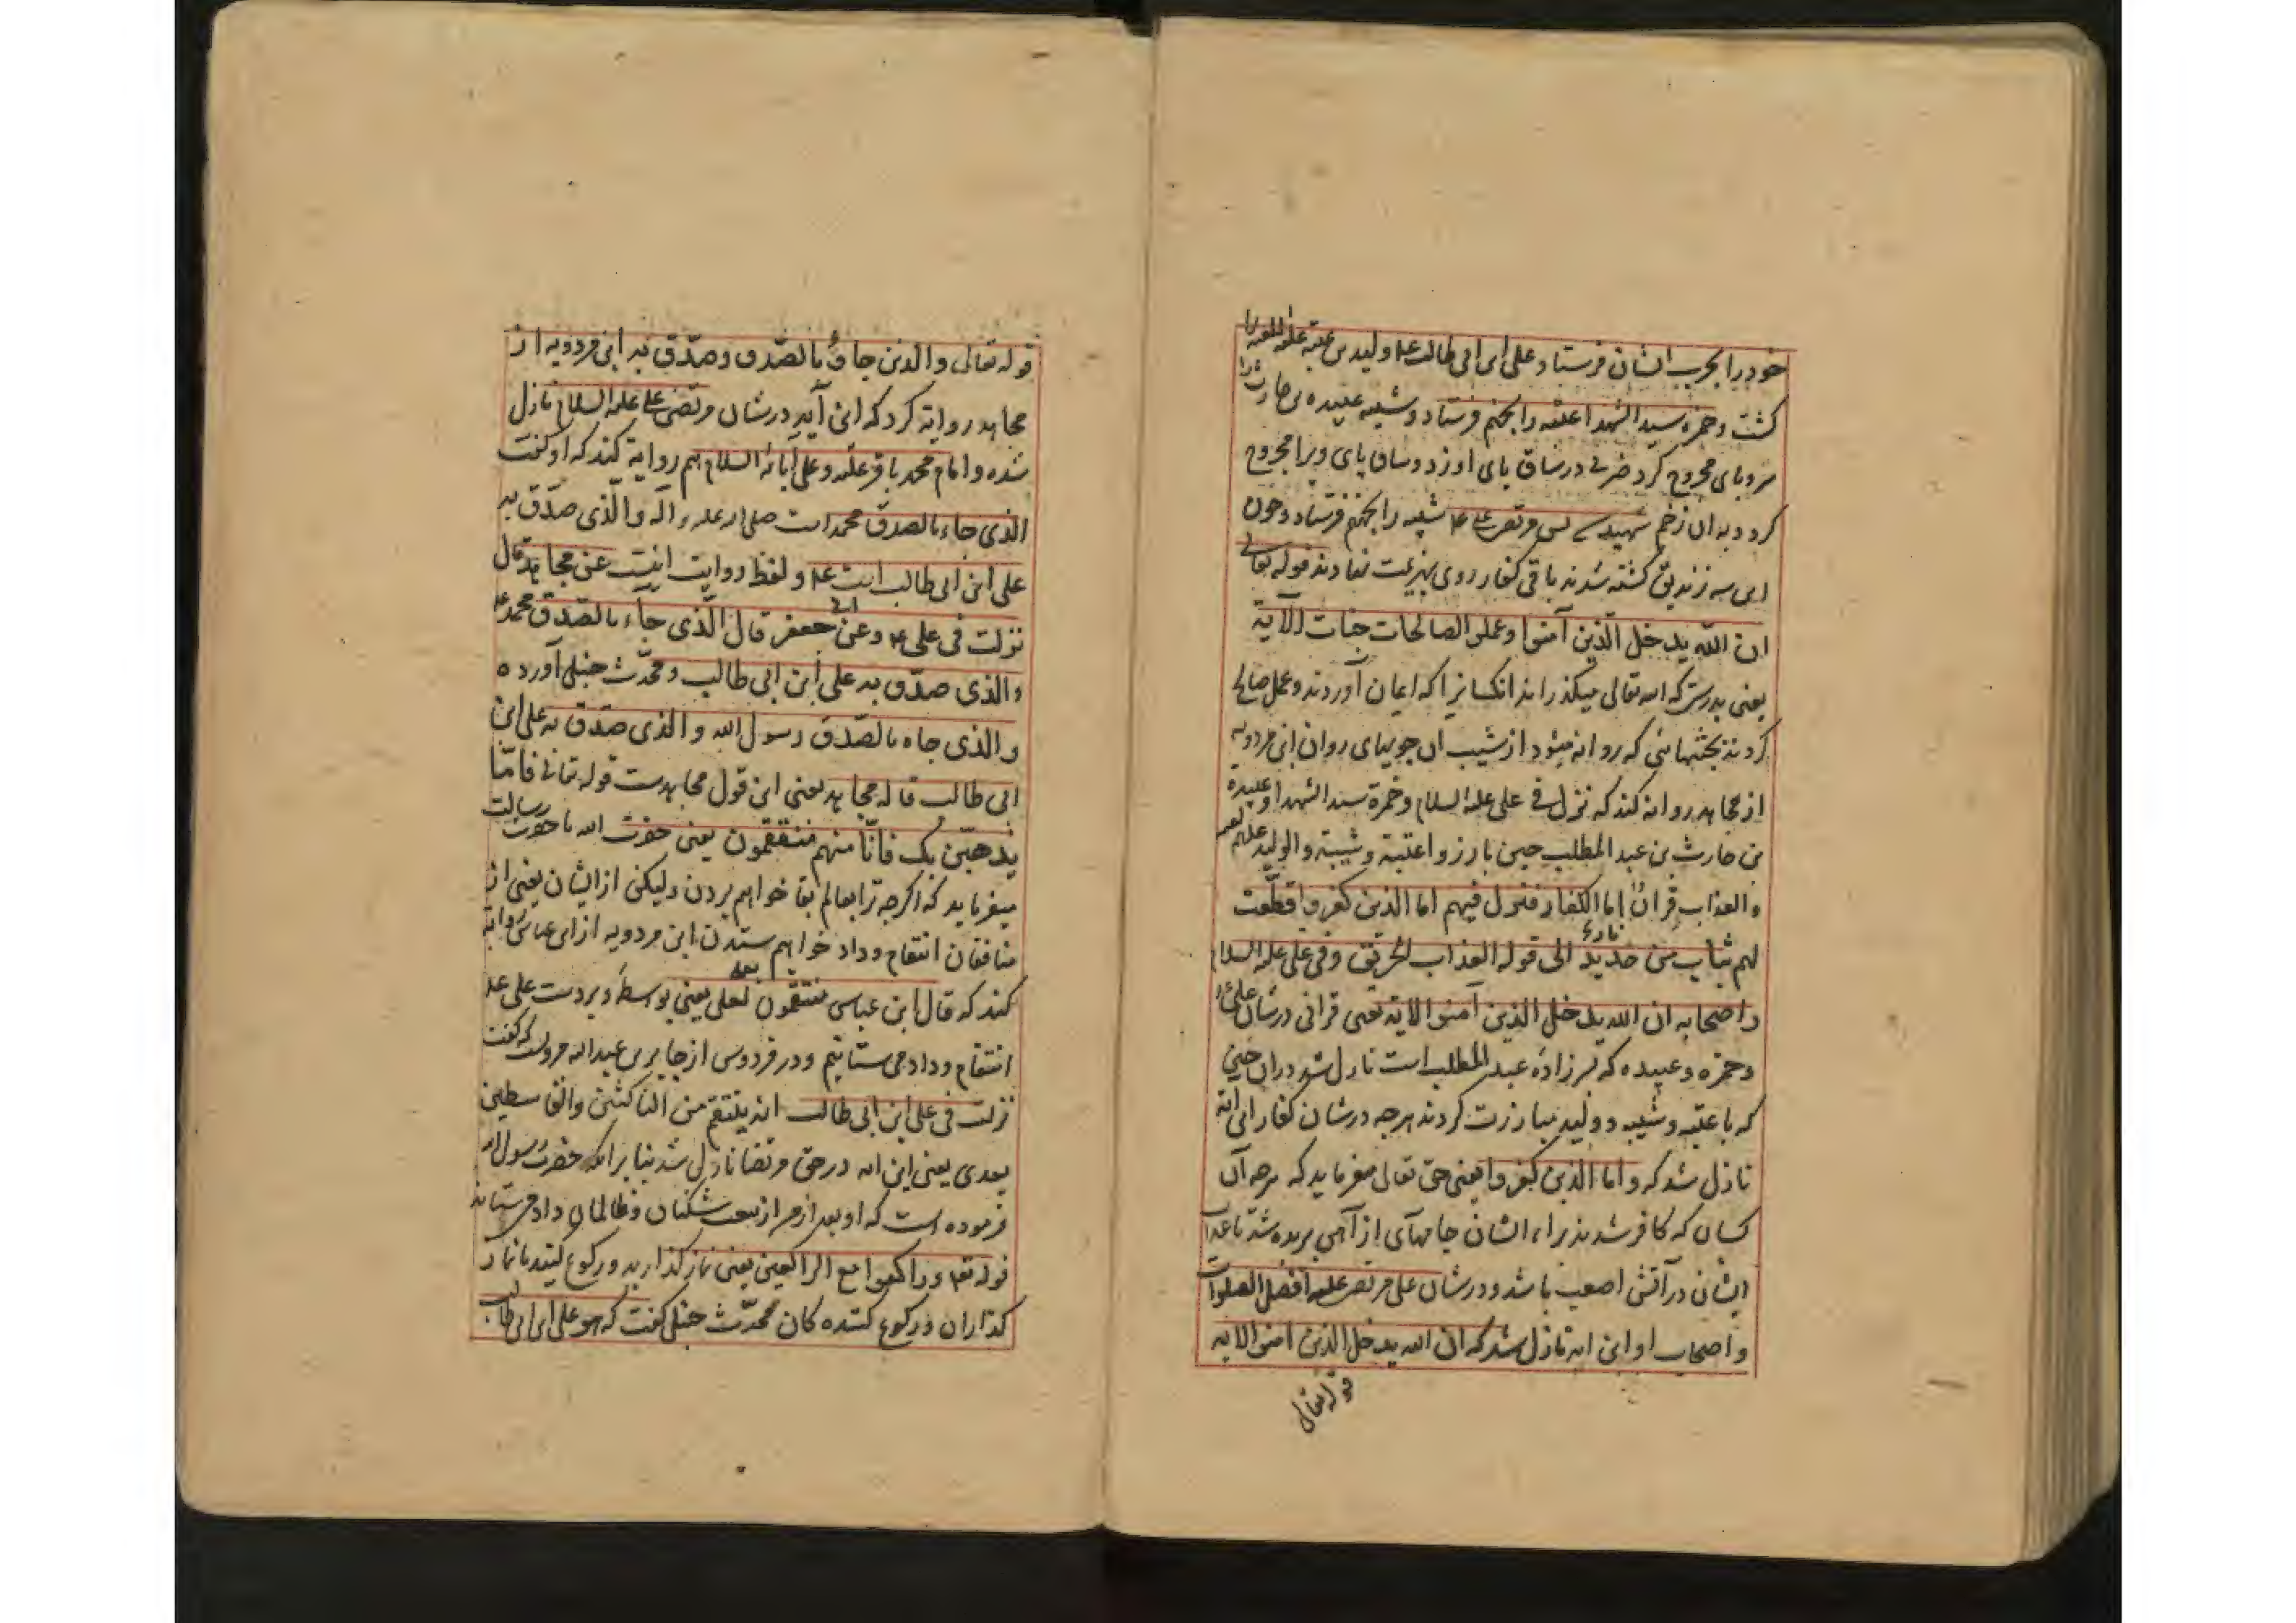 خود را بحرب ایشان فرستاد و علی ابن ابی طالب ع م ولید بن عتبه علیه اللعنه را
کشت و حمزه سید الشهدا عتبه را بجهنم فرستاد و شیبه عبیده بن حارث را
سر و پای مجروح کرد ضربی در ساق پای او زد و ساق پای ویرا مجروح
کرد و به ان زخم شهید شد پس مرتضی علی ع م شیبه را بجهنم فرستاد و چون
این سه زندیق کشته شدند باقی کفار روی بهزیمت نهادند قوله تعالی
ان الله یدخل الذین آمنوا وعملوا الصالحات جنات الآیة
یعنی بدرستیکه الله تعالی میگذراند انکسانرا که ایمان آوردند و عمل صالح
کردند بجنتهائی که روانه میشود از شیب ان جویهای روان ابن مردویه
از مجاهد روایه کند که نزل فی علی علیه السلام و حمزة سید الشهدا و عبیده
بن حارث بن عبد المطلب حین بارزوا عتبة و شیبة والولید علیهم
والعذاب قرآن اما الکفار فنزل فیهم اما الذین کفروا قطعت
لهم ثیاب من حدید نار الی قوله العذاب الحریق وفی علی علیه السلام
واصحابه ان الله یدخل الذین آمنوا الایة یعنی قرانی در شان علی ع
و حمزه و عبیده که پسرزاده عبد المطلب است نازل شد دران حین
که با عتبه و شیبه و ولید مبارزت کردند هرچه در شان کفار این آیة
نازل شد که و اما الذین کفروا یعنی حق تعالی میفرماید که هرچه آن
کسان که کافر شدند براء ایشان جامهآی از آهن بریده شد تا عذاب
ایشان در آتش اصعب باشد و در شان علی مرتضی علیه افضل الصلوات
و اصحاب او این ایه نازل شد که ان الله یدخل الذین امنوا الایه
قوله تعالی
قوله تعالی والذین جاؤ بالصدق وصدق به ابن مردویه از
مجاهد روایة کرد که این آیه در شان مرتضی علی علیه السلام نازل
شده و امام محمد باقر علیه و علی آبائه السلام هم روایة کند که او گفت
الذی جاء بالصدق محمد است صلی الله علیه واله والذی صدق به
علی ابن ابی طالب است ع م و لفظ روایت اینست عن مجاهد قال
نزلت فی علی ع م وعن ابی جعفر قال الذی جاء بالصدق محمد ع
والذی صدق به علی ابن ابی طالب و محدث حنبلی آورده
والذی جاه بالصدق رسول الله والذی صدق به علی ابن
ابی طالب قاله مجاهد یعنی این قول مجاهدست قوله تعالی فامّا
یذهبّن بک فانّا منهم منتقمون یعنی حضرت الله با حضرت رسالت
میفرماید که اگرچه ترا بعالم بقا خواهم بردن ولیکن از ایشان یعنی از
منافقان انتقام و داد خواهم ستدن ابن مردویه از ابن عباس روایة
کند که قال ابن عباس منتقمون بعلی یعنی بواسطه و بر دست علی ع
انتقام و داد می ستانیم و در فردوس از جابر بن عبد الله مرویست که گفت
نزلت فی علی ابن ابی طالب انه ینتقم من الناکثین والقاسطین
بعدی یعنی این ایه در حق مرتضا نازل شد بنا برانکه حضرت رسول الله
فرموده است که او بعد از من از بیعت شکنان و ظالمان داد می ستاند
قوله تع م وراکعوا مع الراکعین یعنی نماز گذارید و رکوع کنید با نماز
گذاران و رکوع کننده کان محدّث حنبلی گفت که هو علی ابن ابی طالب